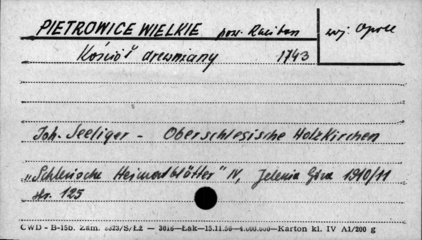 PIETROWICE WIELKIE pow. Racibórz woj: Opole
Kościół drewniany 1743
Joh. Seeliger - Oberschlesische Holzkirchen
„Schlesische Heimatblätter" IV, Jelenia Góra 1910/11
str. 125
CWD - B-15b. Zam. 5523/S/ŁZ — 3016—Łak—15.11.56—4.000.000—Karton kl. IV A1/200 g